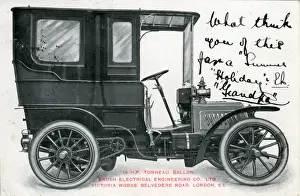 What think
you of this
for a "Summer
Holiday". Eh.
"Grandpa"
16 H.P. TONNEAU BALLON.
BRUSH ELECTRICAL ENGINEERING CO. LTD
VICTORIA WORKS, BELVEDERE ROAD, LONDON, S.E.